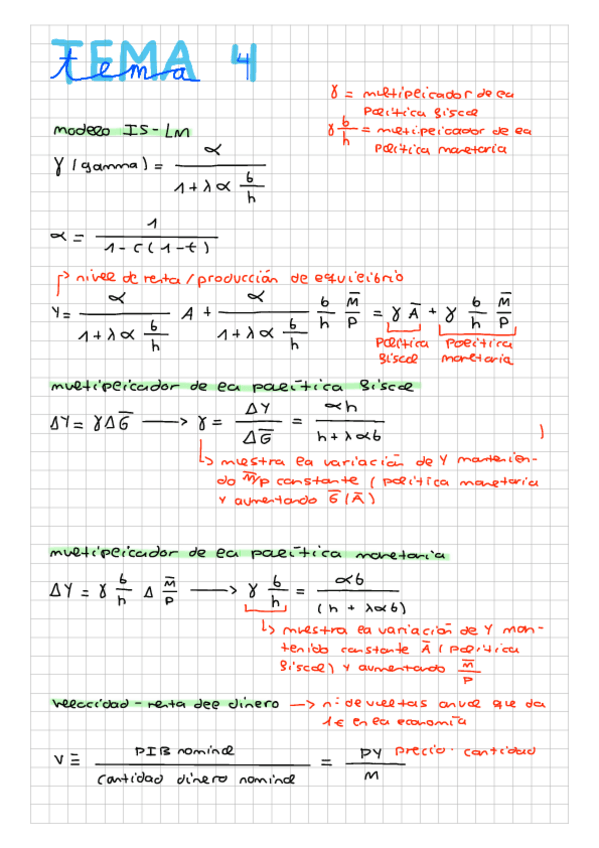 TEMA 4
tema
γ = multiplicador de la
política fiscal
γ b/h = multiplicador de la
política monetaria
modelo IS-LM
γ (gamma) = α / (1 + λ α b/h)
α = 1 / (1 - c (1 - t))
nivel de renta / producción de equilibrio
Y = α / (1 + λ α b/h) A + α / (1 + λ α b/h) b/h M̅/P = γ A̅ + γ b/h M̅/P
política fiscal
política monetaria
multiplicador de la política fiscal
ΔY = γ Δ G̅ → γ = ΔY / ΔG̅ = αh / (h + λαb)
)
muestra la variación de Y mantenien-
do M̅/P constante (política monetaria
y aumentando G̅ (A̅)
multiplicador de la política monetaria
ΔY = γ b/h Δ M̅/P → γ b/h = αb / (h + λαb)
muestra la variación de Y man-
tenido constante A̅ (política
fiscal) y aumentando M̅/P
velocidad - renta del dinero → nº de vueltas anual que da
1€ en la economía
V ≡ PIB nominal / cantidad dinero nominal = PY / M precio · cantidad